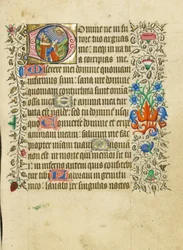 Domine ne in fu
rore tuo arguas
me: neq; in ira
tua corripias
me.
Miserere mei domine quoniam
infirmus sum: sana me domine
quoniam conturbata sunt omnia
ossa mea. Et anima mea tur
bata est valde: sed tu domine
usquequo. Convertere domine et eripe
animam meam: salvum me fac
propter misericordiam tuam. Quoniam
non est in morte qui memor sit tui
in inferno autem quis confitebitur
tibi. Laboravi in gemitu
meo: lavabo per singulas noctes